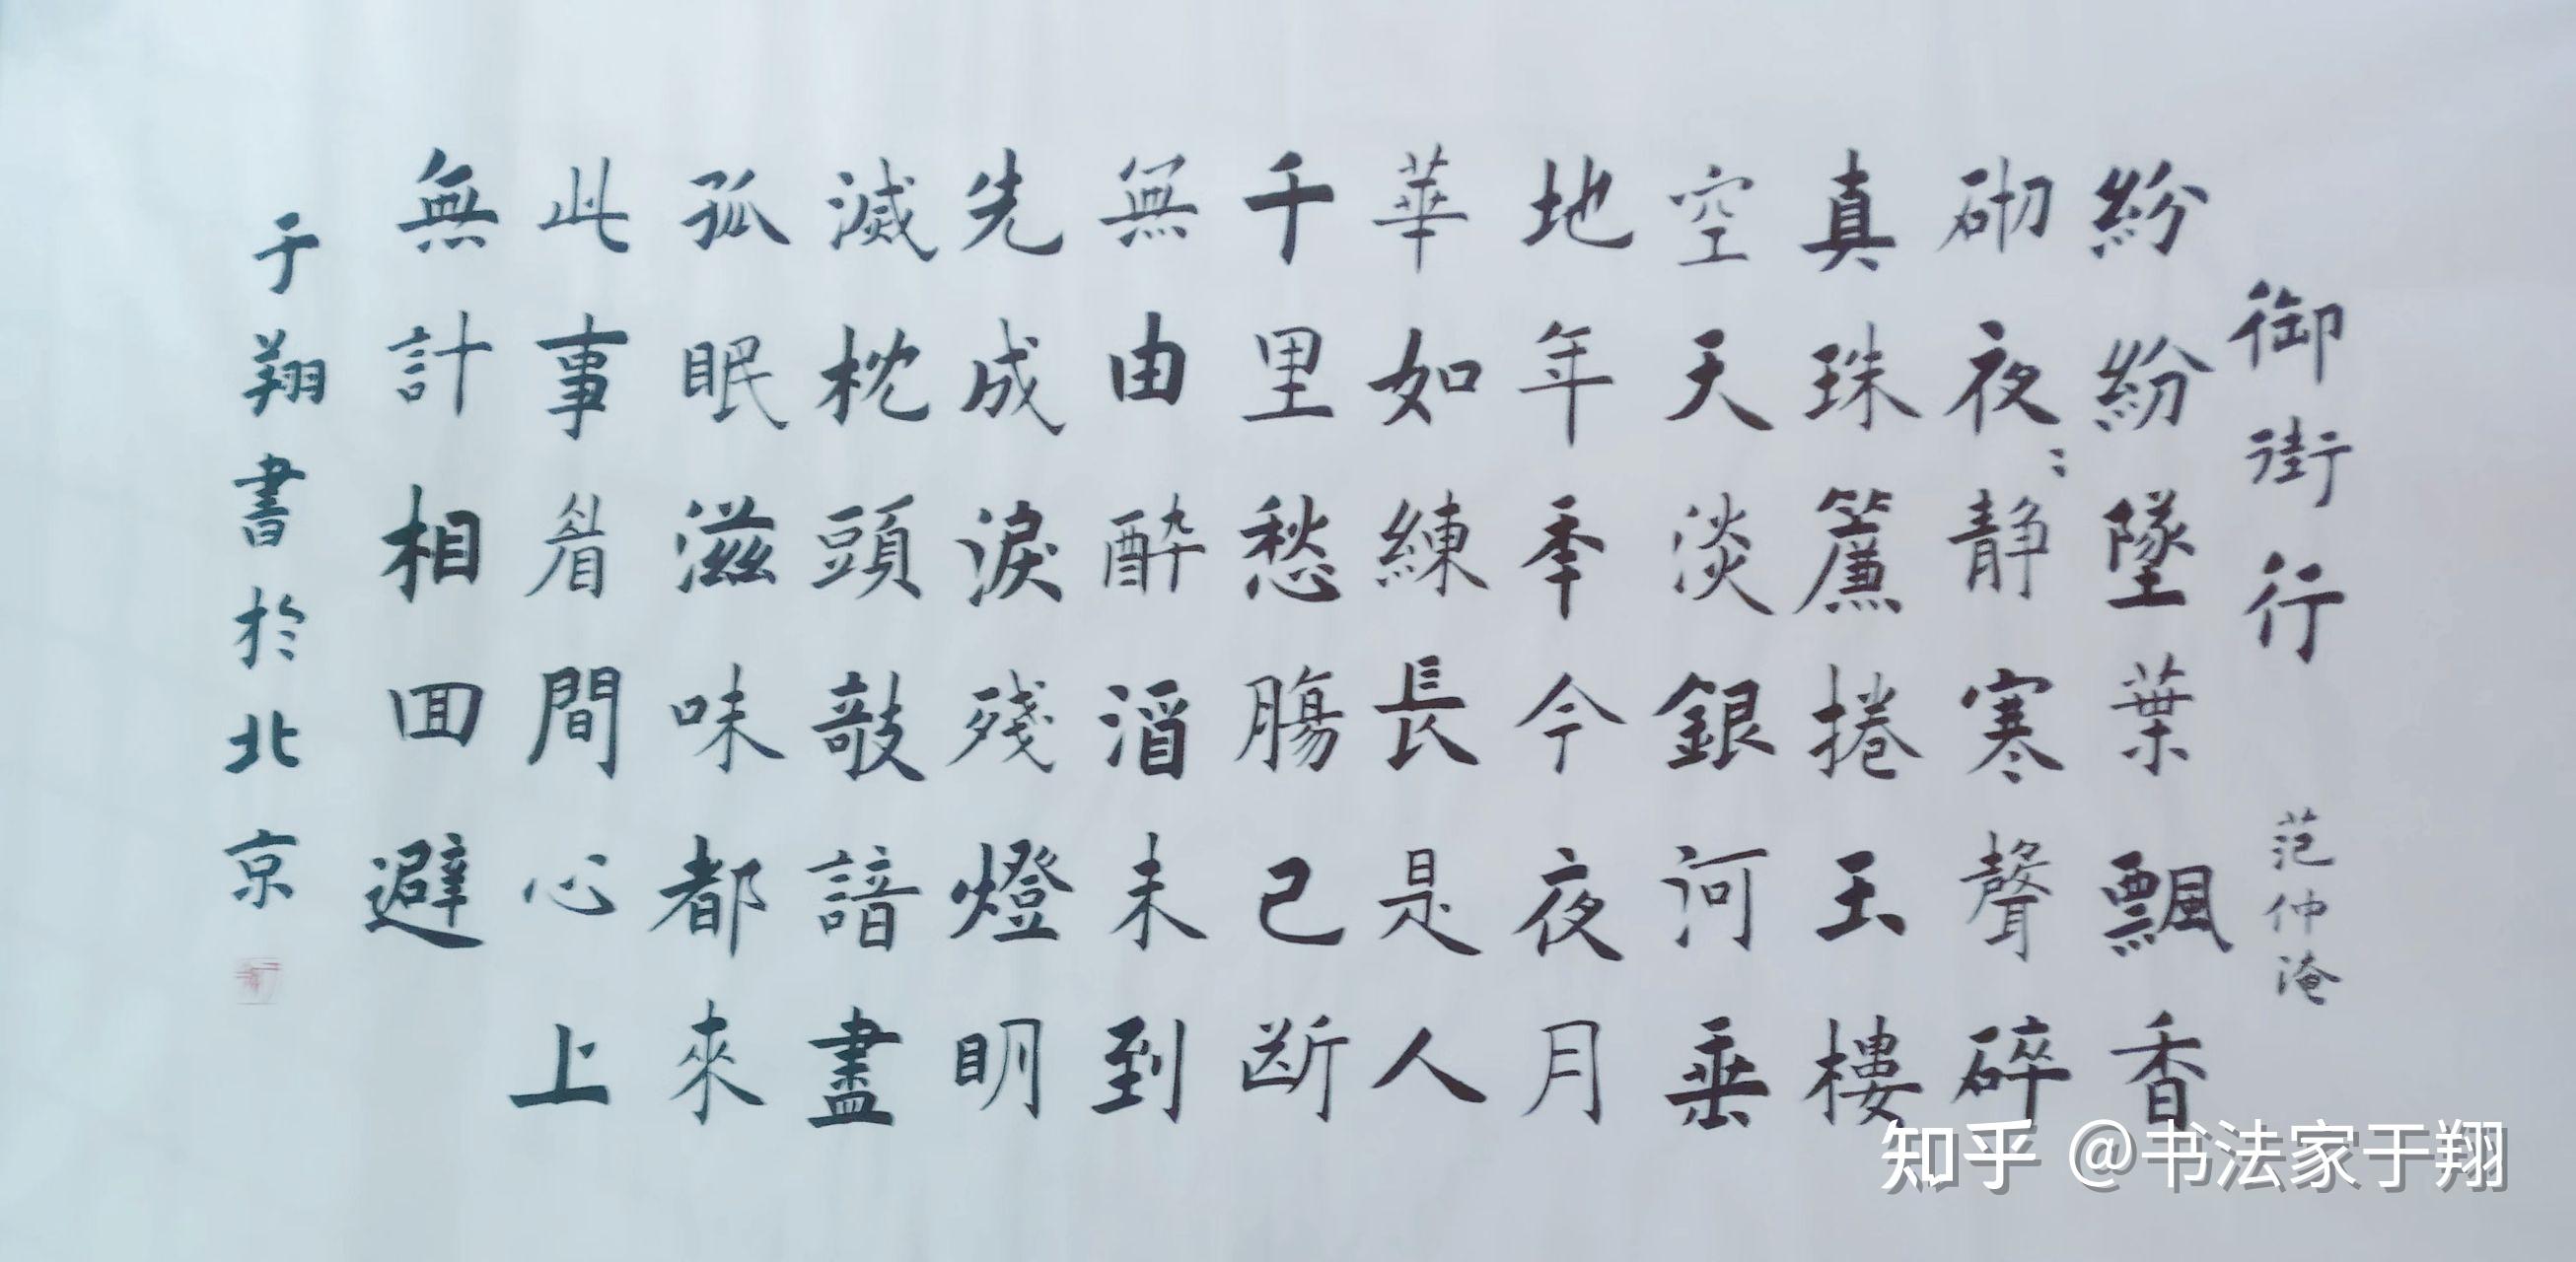 御街行 范仲淹
紛紛墜葉飄香
砌夜:静寒聲碎
真珠簾捲玉樓
空天淡銀河垂
地年秊今夜月
華如練長是人
千里愁腸已断
無由醉酒未到
先成淚殘燈明
滅枕頭敧諳盡
孤眠滋味都來
此事眉間心上
無計相囬避
于翔書於北京
知乎 @书法家于翔